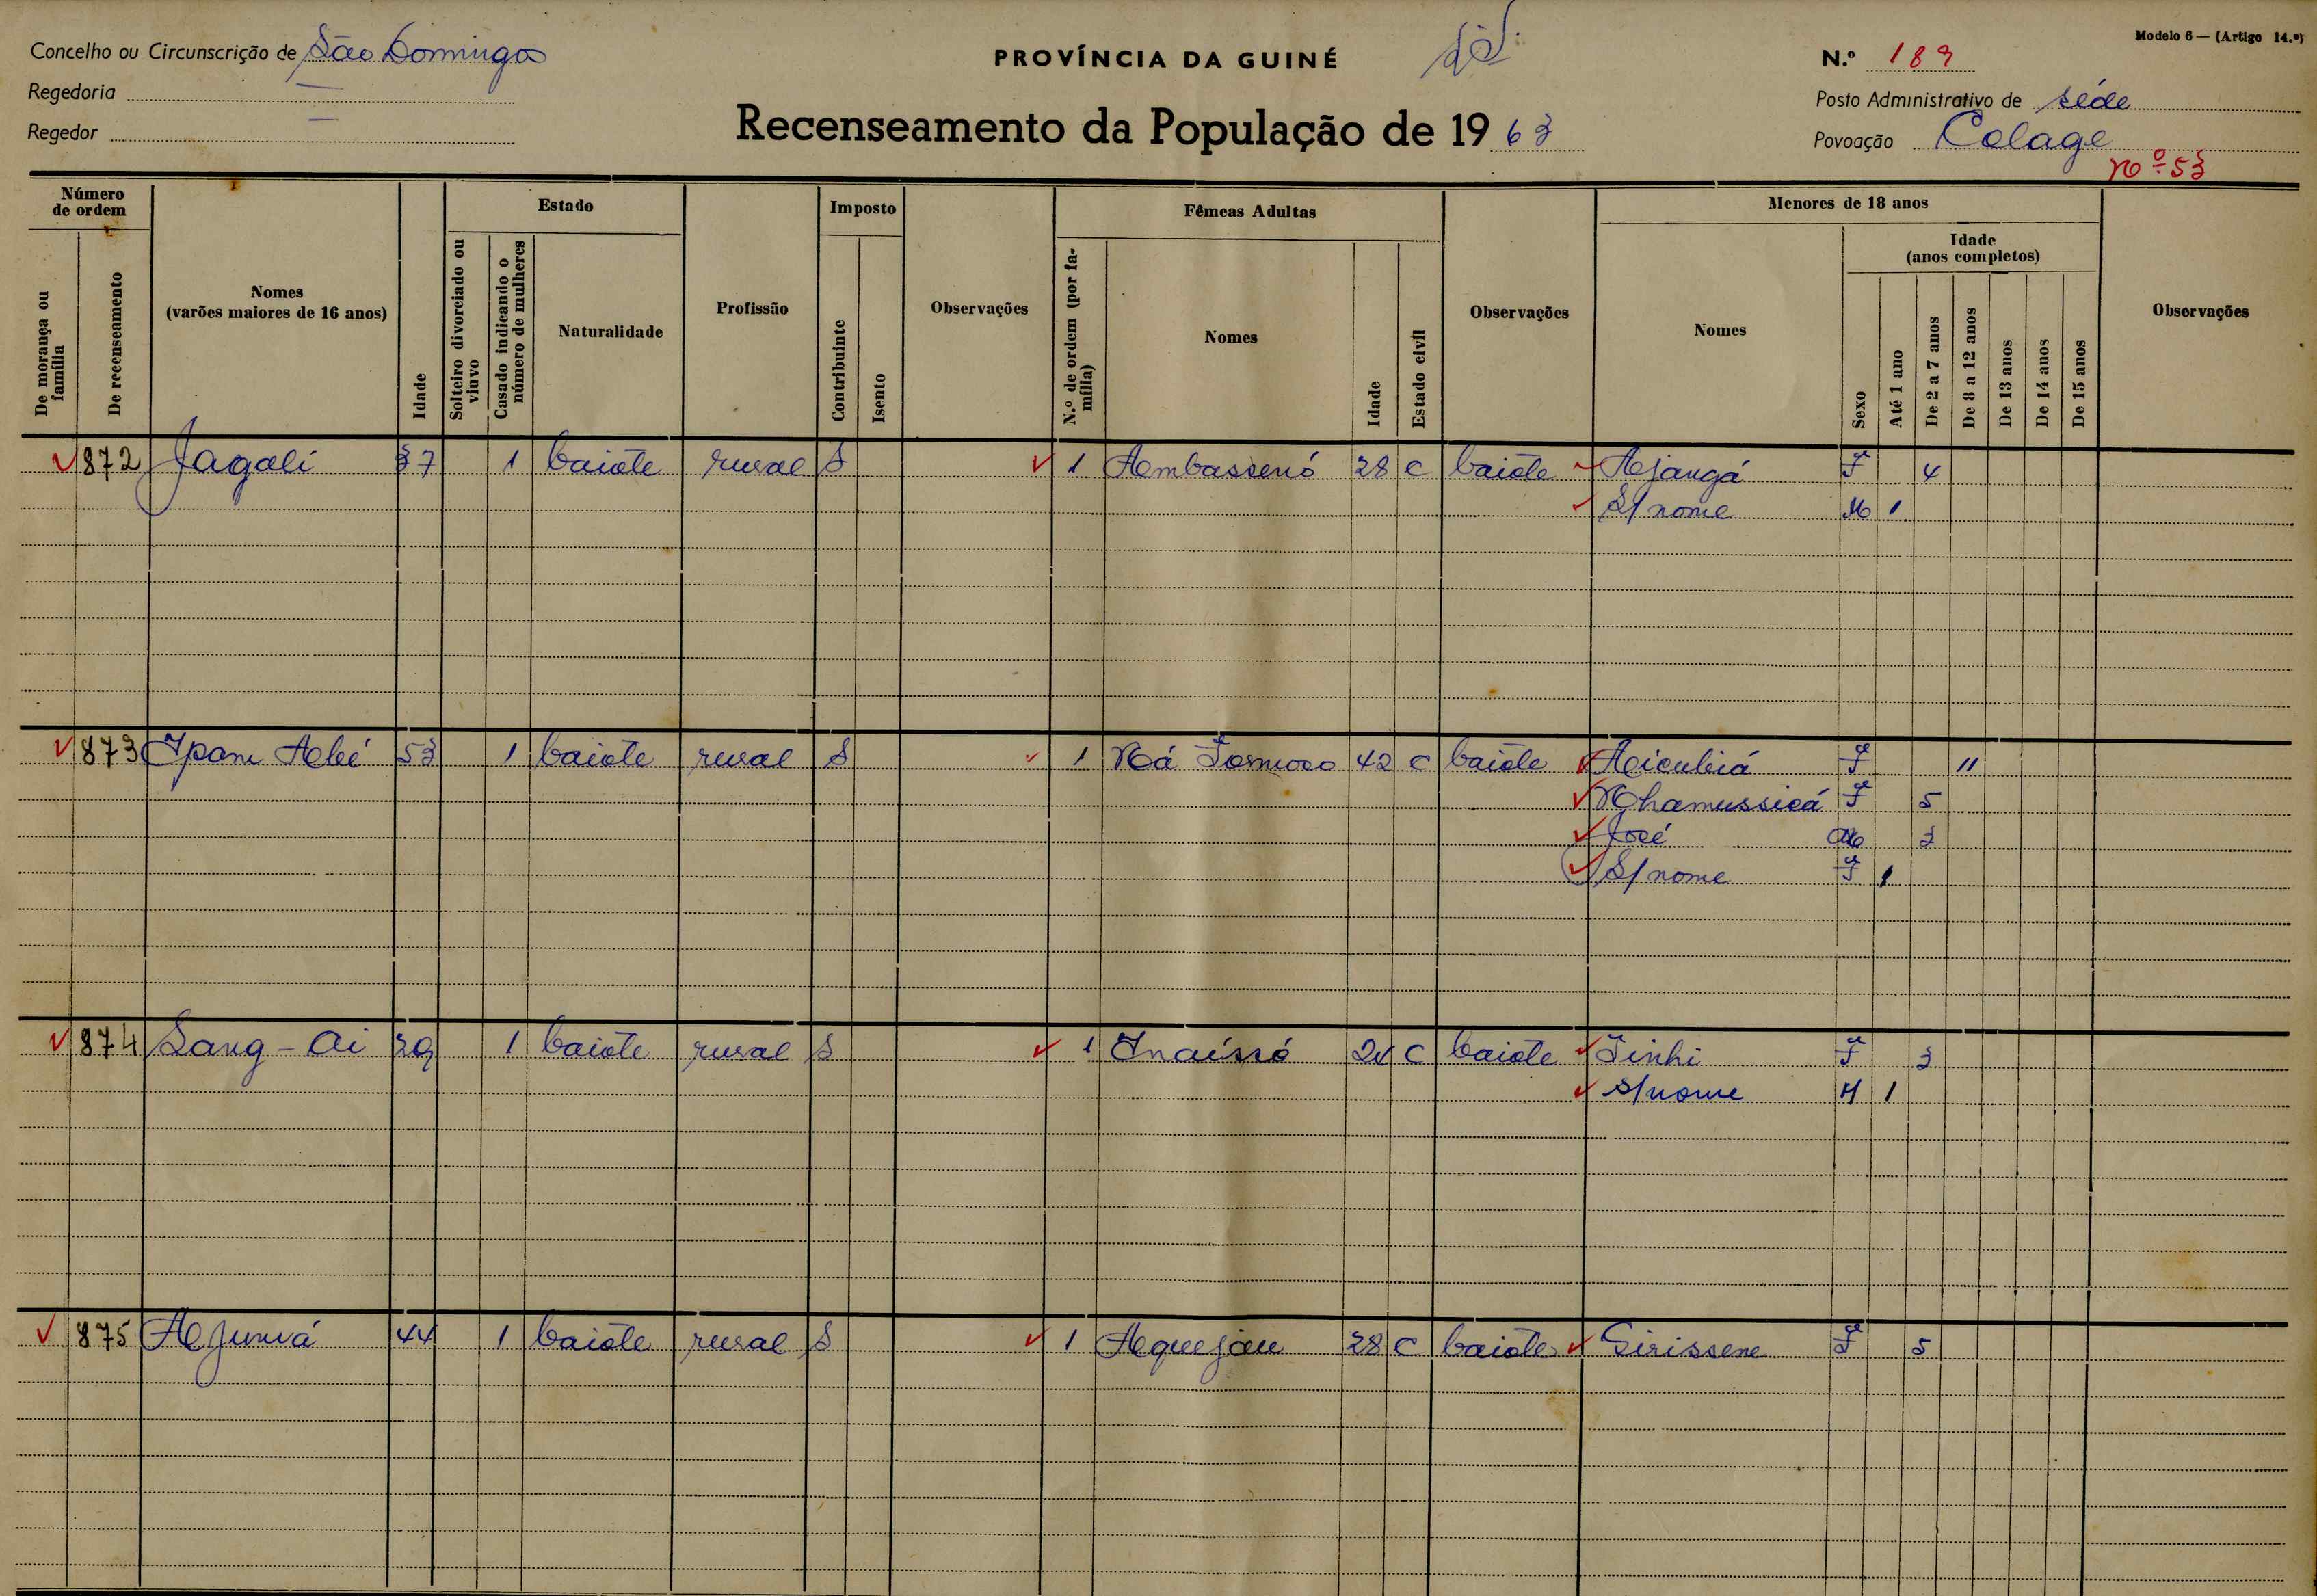 Modelo 6 — (Artigo 14.º)
Concelho ou Circunscrição de São Domingos
PROVÍNCIA DA GUINÉ
N.º 189
Regedoria —
Posto Administrativo de Séde
Regedor —
Recenseamento da População de 1963
Povoação Colage
Nº 53
Número de ordem
De morança ou família
De recenseamento
Nomes
(varões maiores de 16 anos)
Idade
Estado
Solteiro divorciado ou viuvo
Casado indicando o número de mulheres
Naturalidade
Profissão
Imposto
Contribuinte
Isento
Observações
Fêmeas Adultas
N.º de ordem (por família)
Nomes
Idade
Estado civil
Observações
Menores de 18 anos
Nomes
Sexo
Idade
(anos completos)
Até 1 ano
De 2 a 7 anos
De 8 a 12 anos
De 13 anos
De 14 anos
De 15 anos
Observações
872 Jagali 37 1 baiote rural S 1 Ambassenó 28 C baiote Ajangá F 4
S/nome M 1
873 53 1 baiote rural S 1 42 C baiote Aiculiá F 11
Nhamussicá F 5
José M 3
S/nome F 1
874 Sang-Ai 29 1 baiote rural S 1 Inaíssó C baiote Finhi F 3
S/nome M 1
875 Ajumá 44 1 baiote rural S 1 Aquejau 28 C baiote Girissene F 5